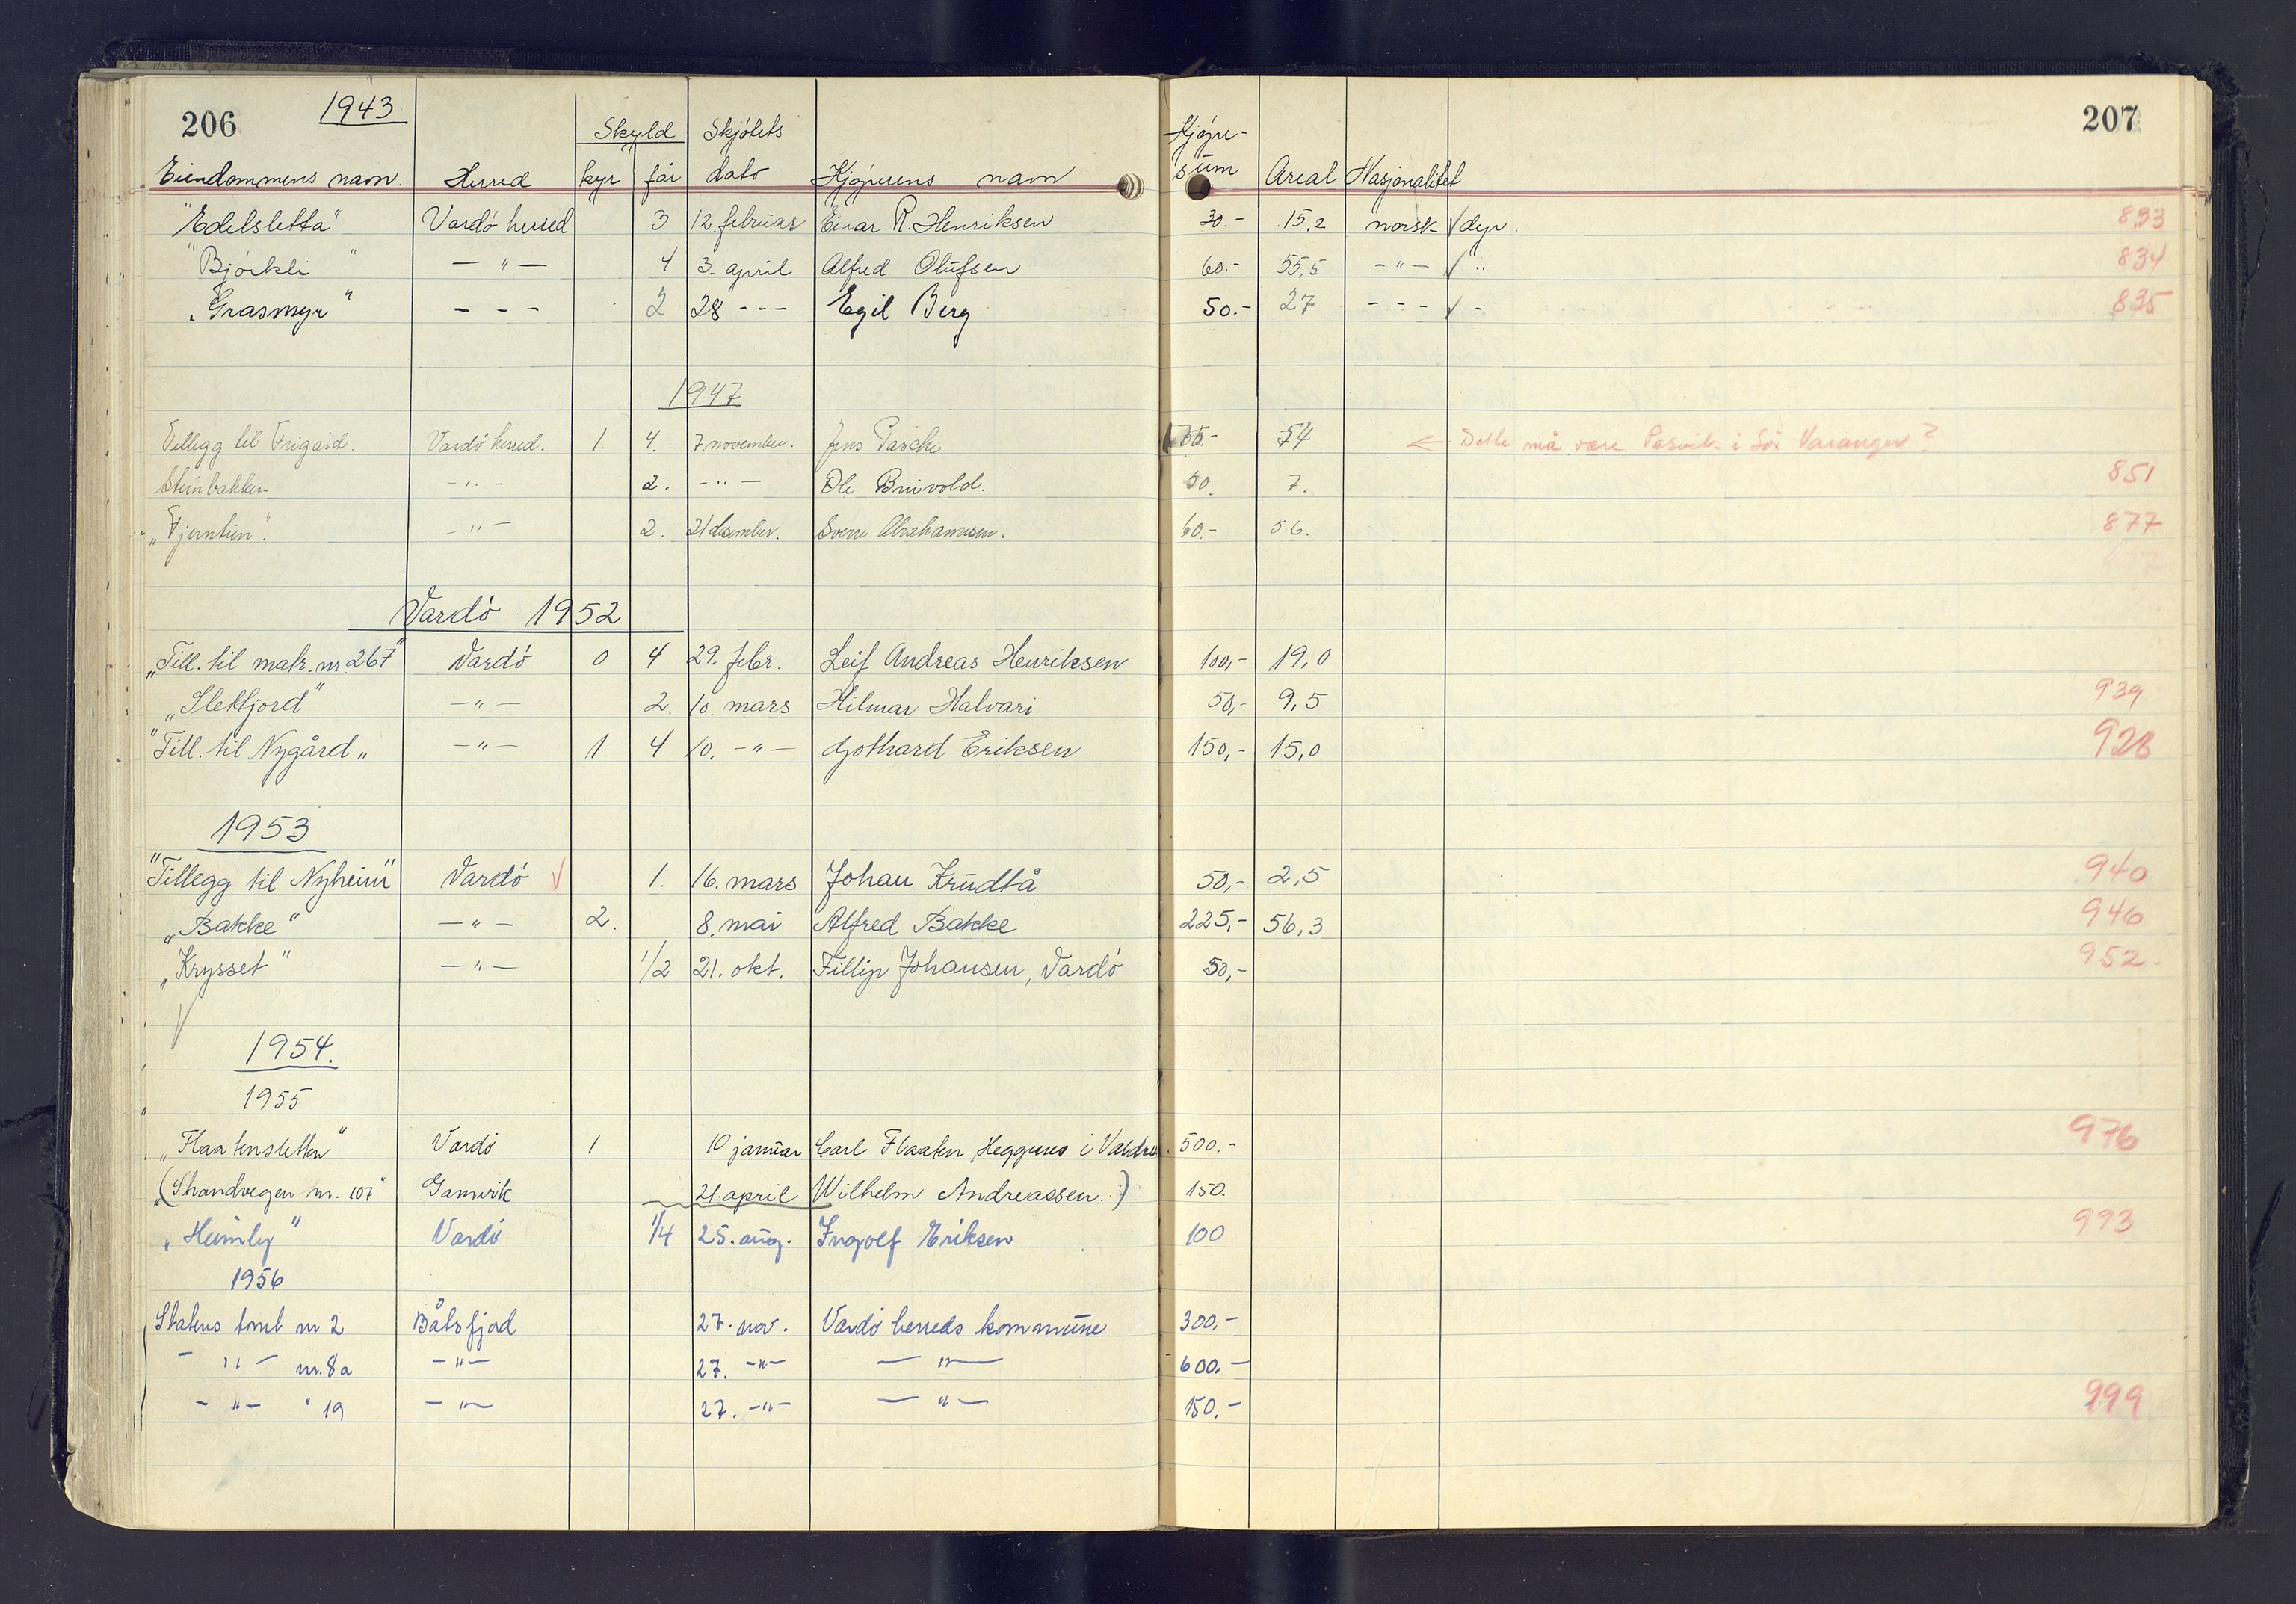 206 1943 207
Skyld Skjøtets Kjøpe-
Eiendommens navn. Herred kyr får dato Kjøperens navn sum Areal Nasjonalitet
"Edelsletta" Vardø herred 3 12. februar Einar R. Henriksen 30.- 15,2 norsk √ dyr. 833
"Bjørkli" — " — 4 3. april Alfred Olufsen 60.- 55,5 - " - √ " 834
"Grasmyr" - - - 2 28 - - - Egil Berg 50.- 27 - - - √ - 835
1947
Tillegg til Frigård. Vardø herred. 1. 4. 7 november. Jens Pasche 54 ← Dette må være Pasvik i Sør Varanger?
Steinbakken - " - 2. - " - Ole Bruvold. 50. 7. 851
"Fjerntun". - " - 2. 21 desember. Sverre Abrahamsen. 60.- 5.6. 877
Vardø 1952
"Till. til matr. nr. 267" Vardø 0 4 29. febr. Leif Andreas Henriksen 100,- 19,0
"Sletfjord" — " — 2. 10. mars Hilmar Halvari 50,- 9,5 939
"Till. til Nygård" — " — 1. 4 10. — " — Gothard Eriksen 150,- 15,0 928
1953
"Tillegg til Nyheim" Vardø √ 1. 16. mars Johan Krudtå 50,- 2,5 940
"Bakke" — " — 2. 8. mai Alfred Bakke 225,- 56,3 946
"Krysset" — " — 1/2 21. okt. Fillip Johansen, Vardø 50,- 952.
√
1954.
1955
"Flaatensletten" Vardø 1 10 januar Carl Flaaten, Heggenes i Valdres. 500.- 976
("Strandvegen nr. 107" Gamvik 21. april Wilhelm Andreassen.) 150.
"Heimly" Vardø 1/4 25. aug. Ingolf Eriksen 100 993
1956
Statens tomt nr 2 Båtsfjord 27. nov. Vardø herreds kommune 300.-
- " - nr. 8a - " - 27. - " - — " — 600.-
- " - " 19 - " - 27. - " - — " — 150.- 999